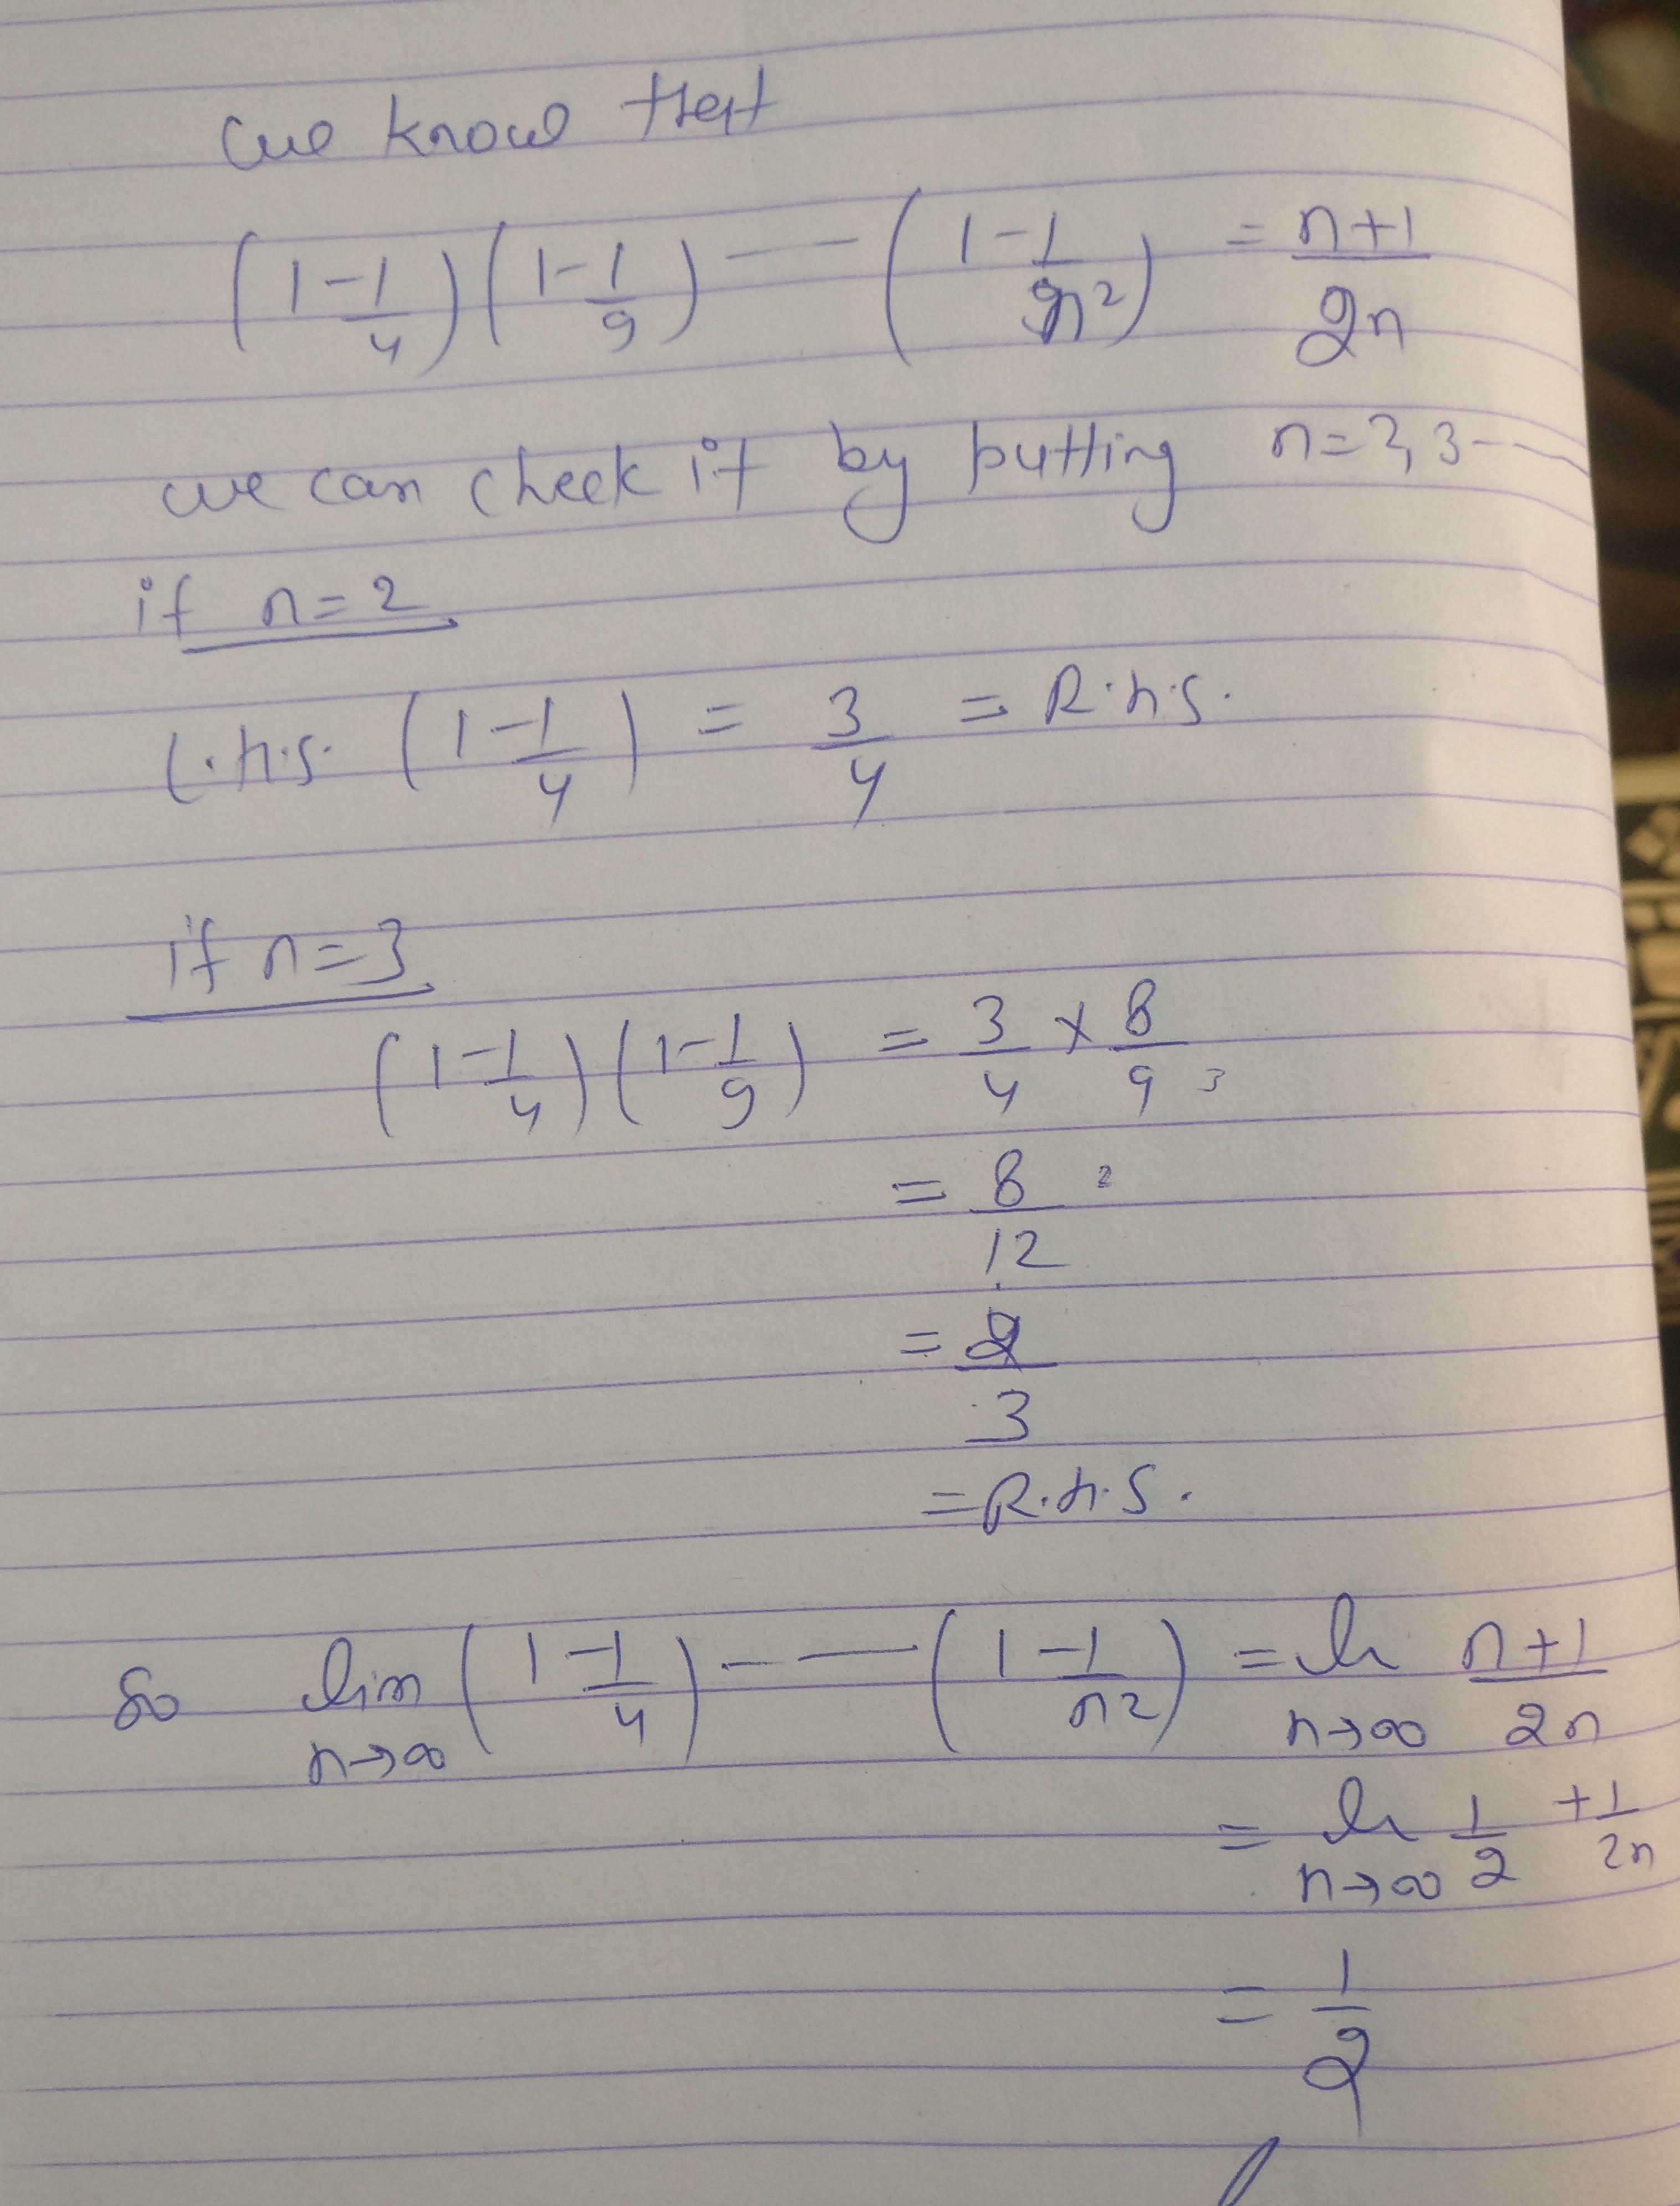 we know that
(1-1/4)(1-1/9) --- (1-1/n²) = n+1/2n
we can check it by putting n=2,3---
if n=2
L.h.s. (1-1/4) = 3/4 = R.h.s.
if n=3
(1-1/4)(1-1/9) = 3/4 x 8/9 3
= 8/12 2
= 2/3
= R.h.s.
So lim n→∞ (1-1/4) --- (1-1/n2) = ln n→∞ n+1/2n
= ln n→∞ 1/2 + 1/2n
= 1/2